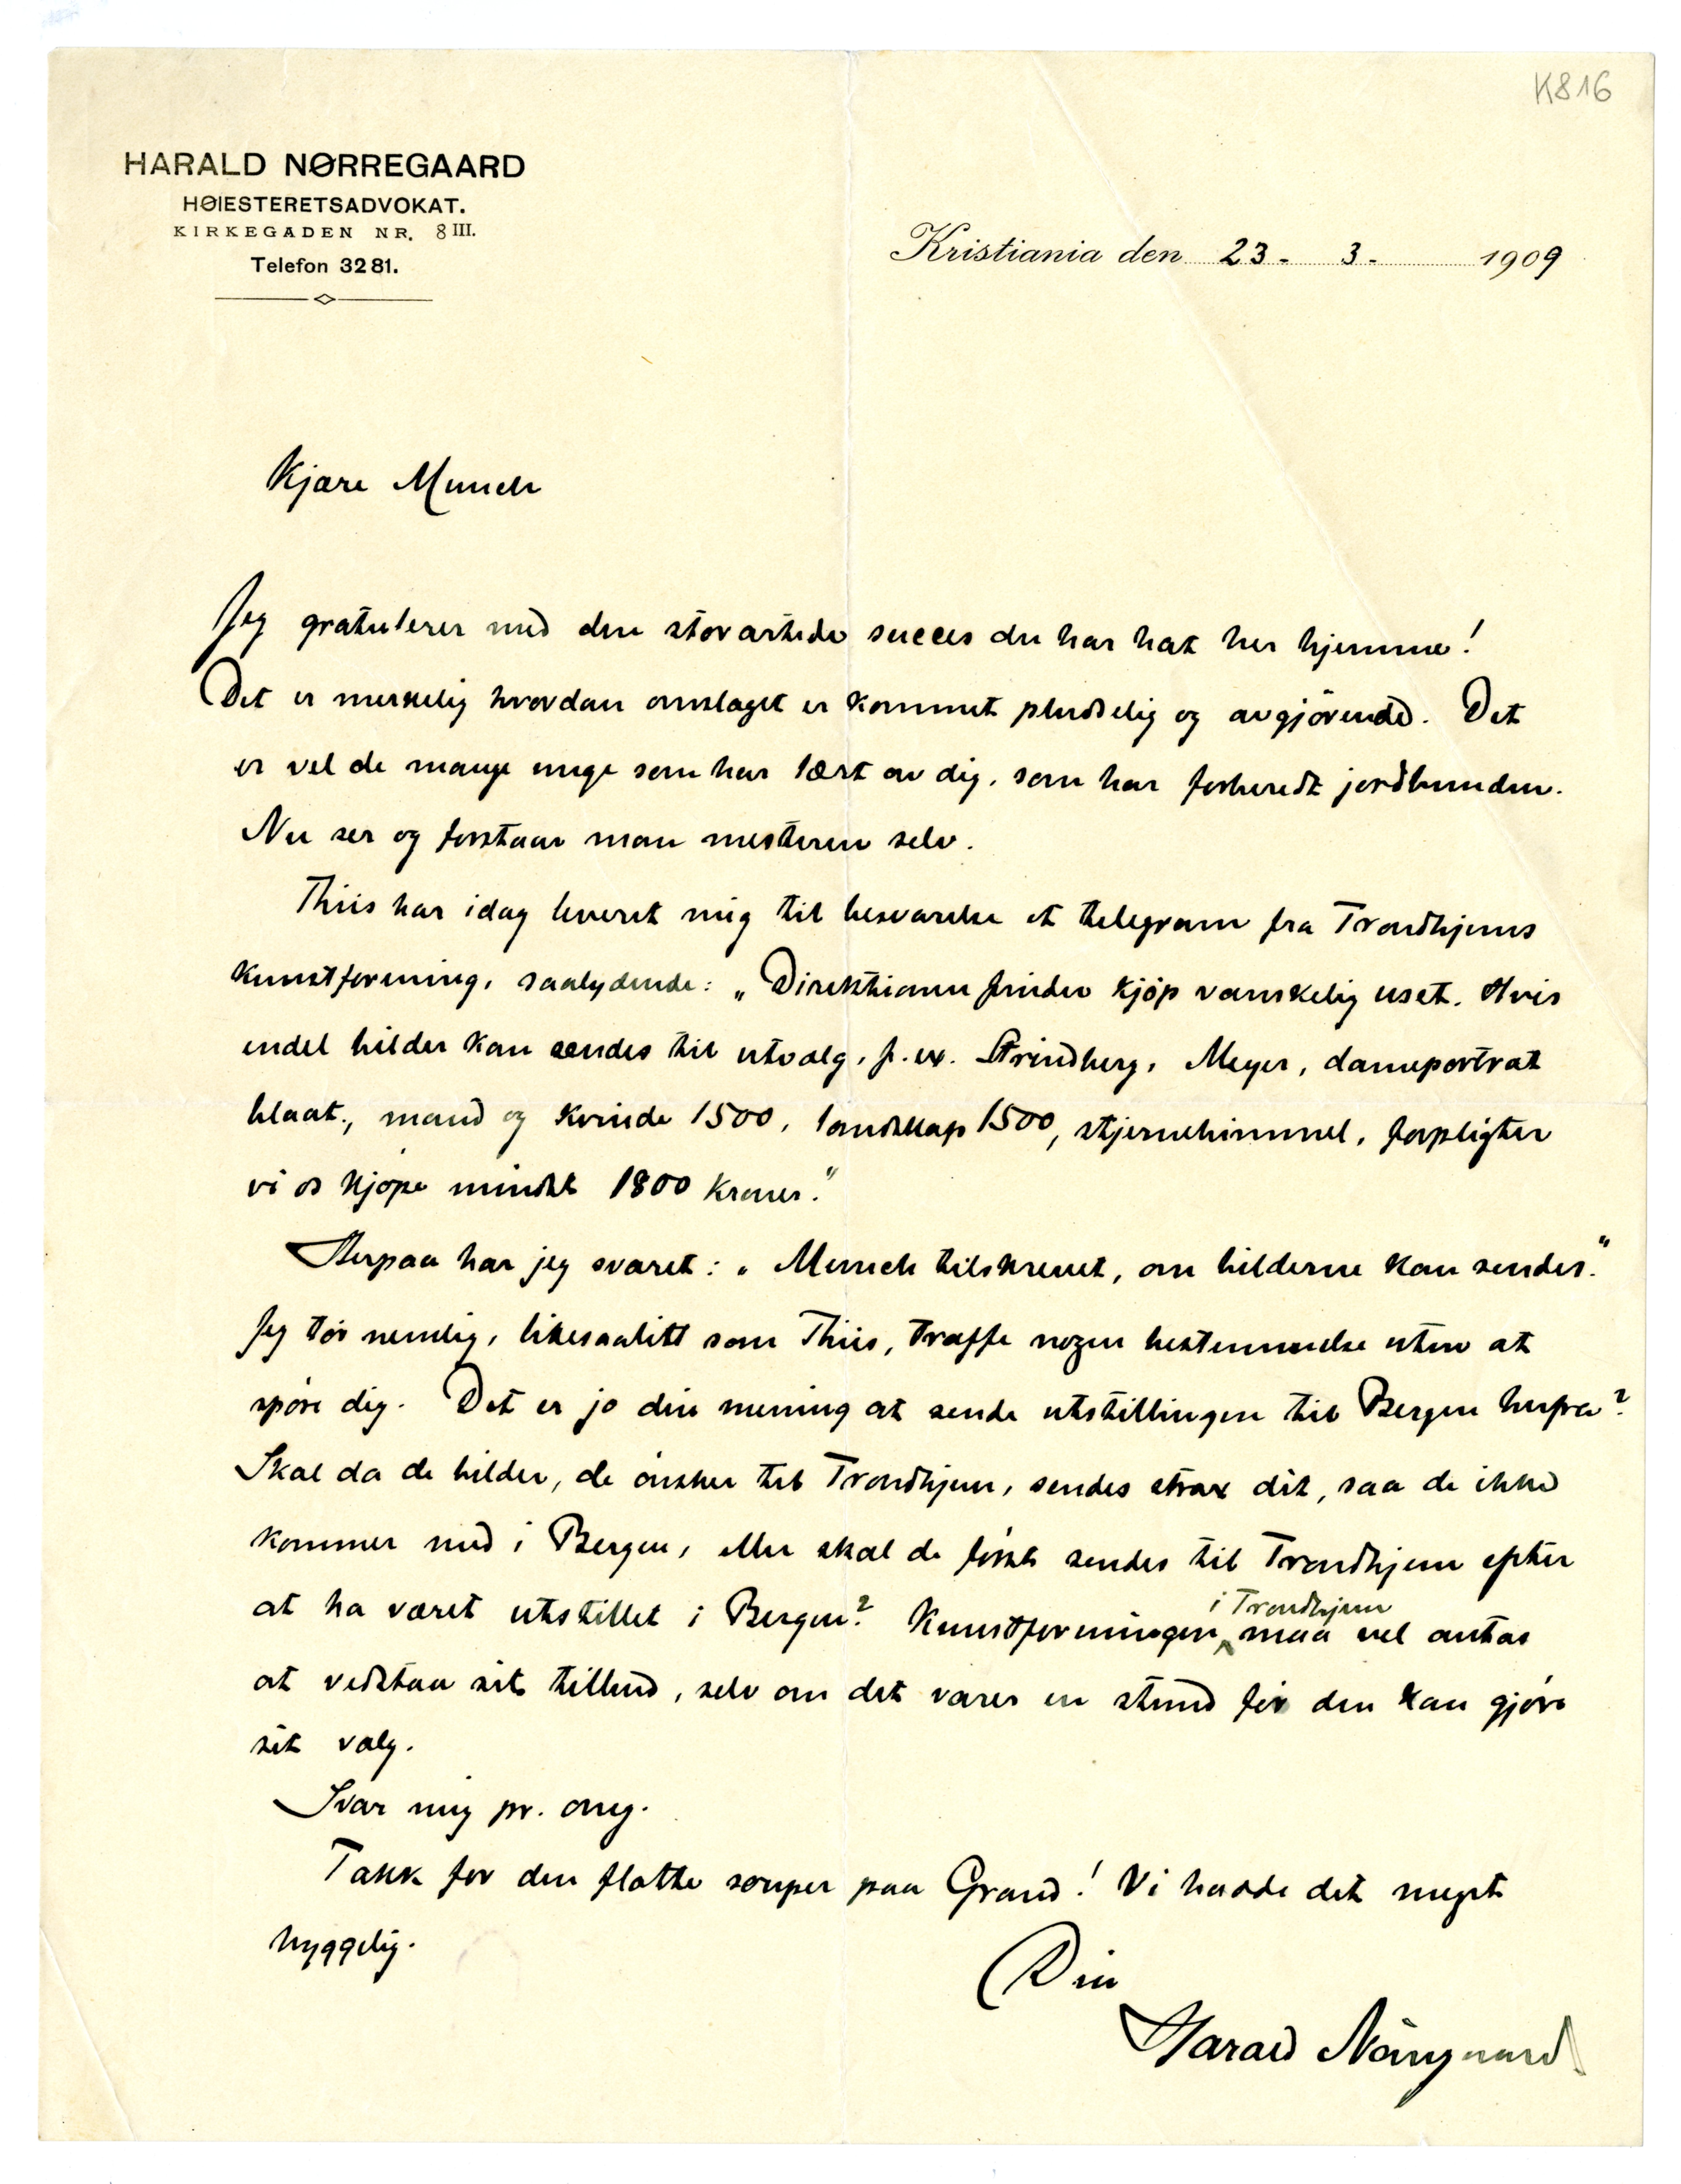 K816
HARALD NØRREGAARD
HØIESTERETSADVOKAT.
KIRKEGADEN NR. 8 III.
Telefon 3281.
Kristiania den 23 - 3 - 1909
Kjære Munch
Jeg gratulerer med den storartede succes du har hat her hjemme!
Det er merkelig hvordan omslaget er kommet pludselig og avgjörende. Det
er vel de mange unge som har lært av dig, som har forberedt jordbunden.
Nu ser og forstaar man mesteren selv.
Thiis har idag leveret mig til besvarelse et telegram fra Trondhjems
kunstforening, saalydende: „Direktionen finder kjöp vanskelig uset. Hvis
endel bilder kan sendes til utvalg, f. ex. Strindberg, Meyer, dameportræt
blaat, mand og kvinde 1500, landskap 1500, stjernehimmel, forpligter
vi os kjöpe mindst 1800 kroner."
Herpaa har jeg svaret: „Munch tilskrevet, om bilderne kan sendes."
Jeg tör nemlig, likesaalitt som Thiis, træffe nogen bestemmelse uten at
spöre dig. Det er jo din mening at sende utstillingen til Bergen herfra?
Skal da de bilder, de önsker til Trondhjem, sendes strax dit, saa de ikke
kommer med i Bergen, eller skal de först sendes til Trondhjem efter
at ha været utstillet i Bergen? Kunstforeningen i Trondhjem maa vel antas
at vedstaa sit tilbud, selv om det varer en stund för den kan gjöre
sit valg.
Svar mig pr. omg.
Takk for den flotte souper paa Grand! Vi hadde det meget
hyggelig.
Din
Harald Nörregaard